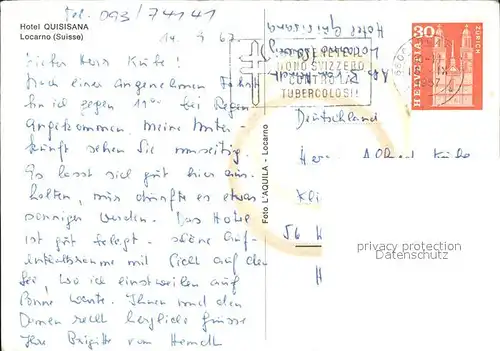 Tel. 093/74141
Hotel QUISISANA
Locarno (Suisse)
14. 9. 67
Lieber Herr Küke!
Nach einer angenehmen Fahrt
bin ich gegen 11⁰⁰ bei Regen
angekommen. Meine Unter-
kunft sehen Sie umseitig.
Es lässt sich gut hier aus-
halten, nur dürfte es etwas
sonniger werden. Das Hotel
ist gut belegt. - schöne Auf-
enthaltsräume mit Sicht auf den
See, wo ich einstweilen auf
Sonne warte. Ihnen und den
Damen recht herzliche Grüsse
Ihre Brigitte von
Foto L'AQUILA - Locarno
Hotel Quisisana
Locarno
DONO SVIZZERO
CONTRO LA
TUBERCOLOSI!
1967
HELVETIA
30
ZÜRICH
Deutschland
Herrn Albert
56
privacy protection
Datenschutz